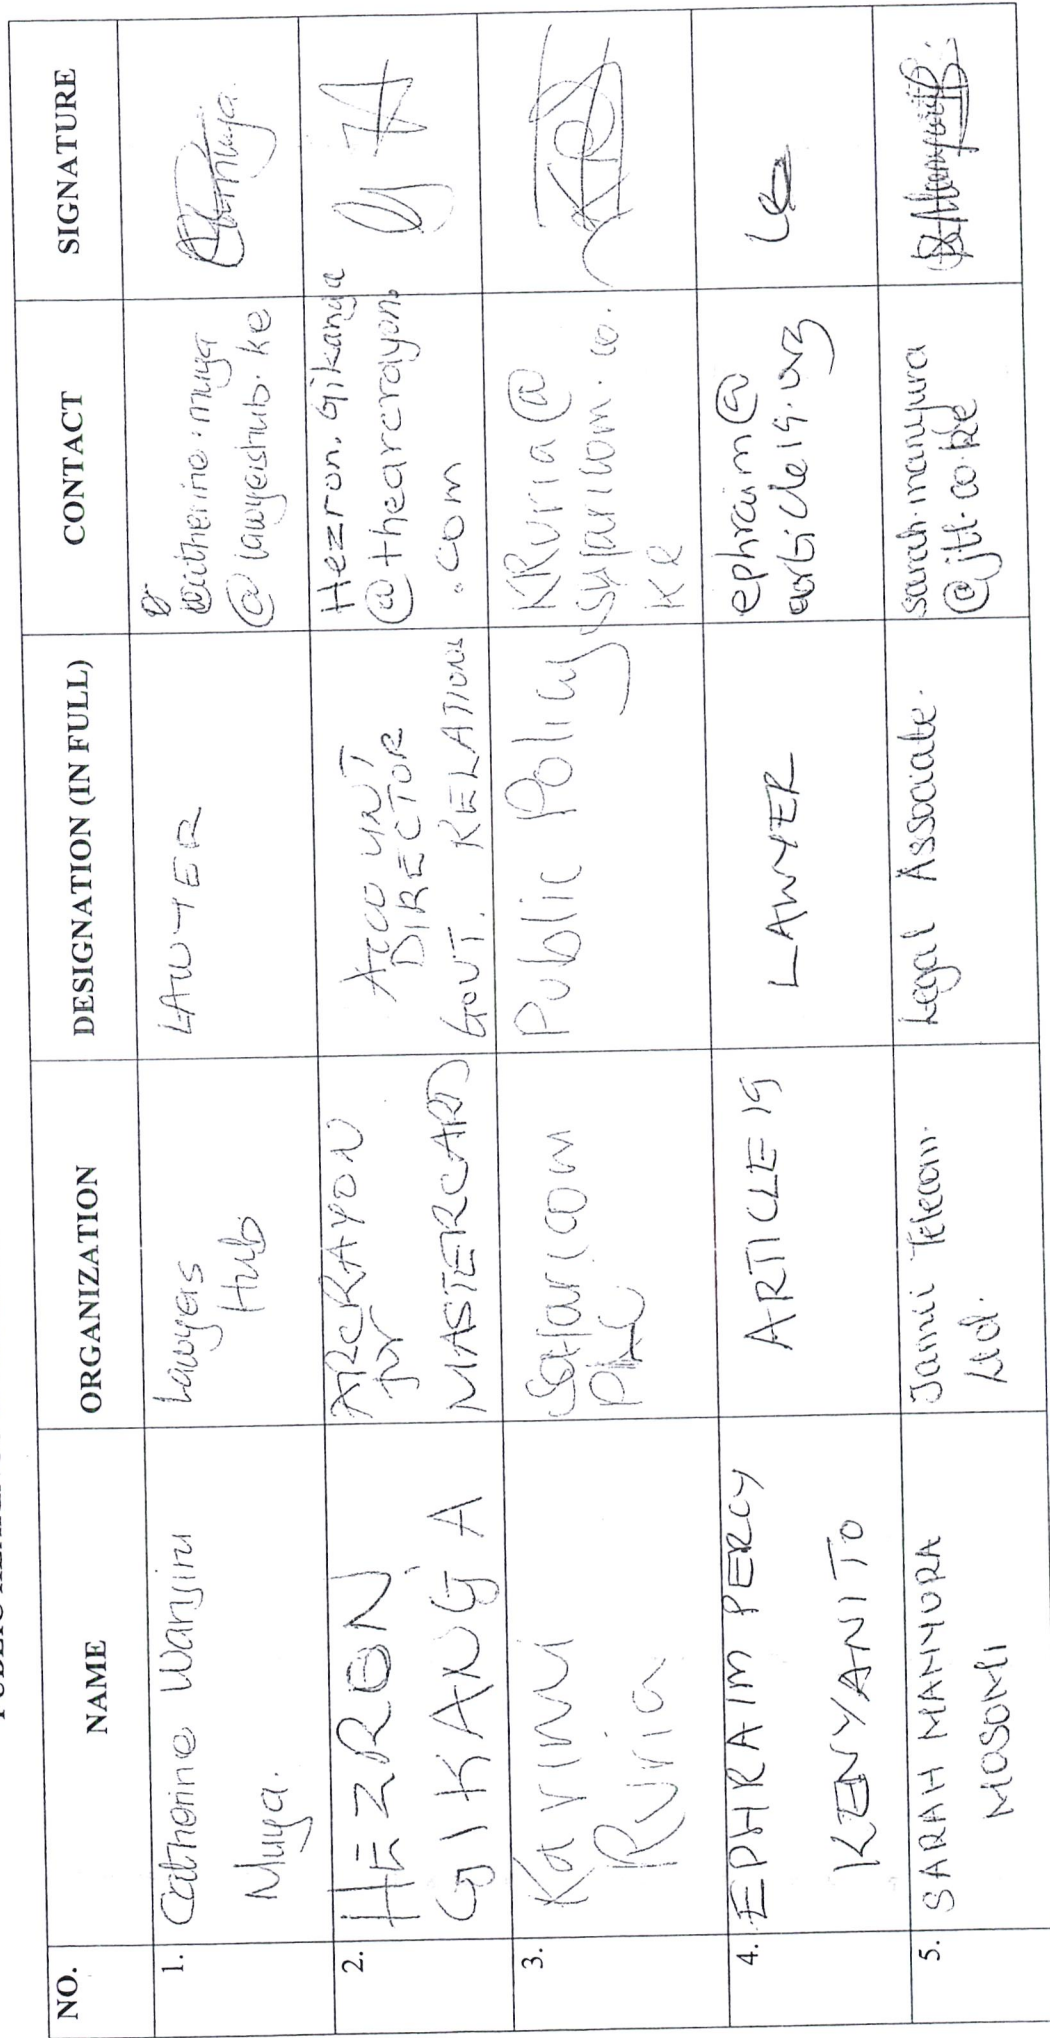 NO. NAME ORGANIZATION DESIGNATION (IN FULL) CONTACT SIGNATURE
1. Catherine Wanjiru
Muya.
Lawyers
Hub
LAWYER
Catherine.muya
@lawyershub.ke
2. HEZRON
GIKANGA
ARCRAYON
for
MASTERCARD
ACCOUNT
DIRECTOR
GOVT. RELATIONS
Hezron.gikanga
@thearcrayon.
.com
3.
Ruria
Safaricom
PLC
Public Policy
KRuria@
safaricom.co.
ke
4. EPHRAIM PERCY
KENYANITO
ARTICLE 19
LAWYER
ephraim@
article19.org
5. SARAH MANYURA
MOSOMI
Jamii Telecom.
Ltd.
Legal Associate.
sarah.manyura
@jtl.co.ke